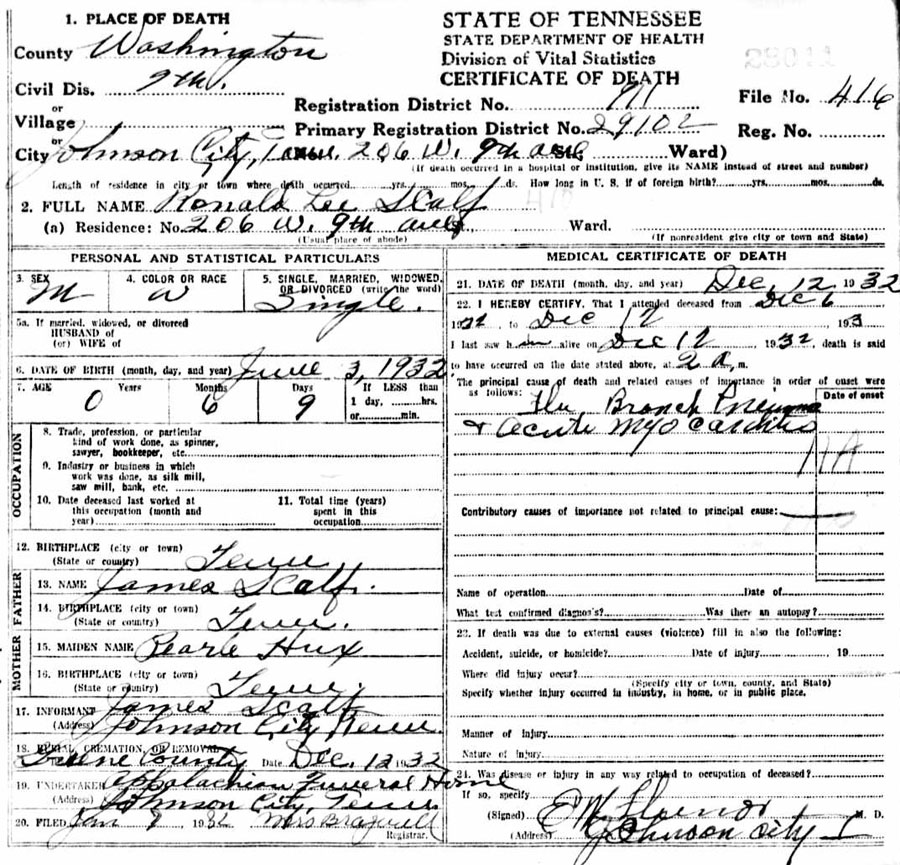 1. PLACE OF DEATH
County Washington
Civil Dis. 9th.
or
Village
or
City Johnson City, Tenn. 206 W. 9th ave St. Ward)
STATE OF TENNESSEE
STATE DEPARTMENT OF HEALTH
Division of Vital Statistics
CERTIFICATE OF DEATH
28011
Registration District No. 911
File No. 416
Primary Registration District No. 29102
Reg. No.
(If death occurred in a hospital or institution, give its NAME instead of street and number)
Length of residence in city or town where death occurred yrs. mos. ds. How long in U. S. if of foreign birth? yrs. mos. ds.
2. FULL NAME Ronald Lee Scalf 416
(a) Residence: No. 206 W. 9th ave St. Ward.
(Usual place of abode) (If nonresident give city or town and State)
PERSONAL AND STATISTICAL PARTICULARS
3. SEX M
4. COLOR OR RACE W
5. SINGLE, MARRIED, WIDOWED, OR DIVORCED (write the word) Single
5a. If married, widowed, or divorced
HUSBAND of
(or) WIFE of
6. DATE OF BIRTH (month, day, and year) June 3, 1932
7. AGE Years Months Days If LESS than
0 6 9 1 day, hrs.
or min.
OCCUPATION
8. Trade, profession, or particular
kind of work done, as spinner,
sawyer, bookkeeper, etc.
9. Industry or business in which
work was done, as silk mill,
saw mill, bank, etc.
10. Date deceased last worked at
this occupation (month and
year)
11. Total time (years)
spent in this
occupation
12. BIRTHPLACE (city or town)
(State or country) Tenn
FATHER
13. NAME James Scalf.
14. BIRTHPLACE (city or town)
(State or country) Tenn.
MOTHER
15. MAIDEN NAME Pearle Hux
16. BIRTHPLACE (city or town)
(State or country) Tenn.
17. INFORMANT James Scalf
(Address) Johnson City Tenn
18. BURIAL, CREMATION, OR REMOVAL
Greene County Date Dec. 12 1932
19. UNDERTAKER Appalachian Funeral Home
(Address) Johnson City, Tenn
20. FILED Jan 9 1932 Mrs
Registrar.
MEDICAL CERTIFICATE OF DEATH
21. DATE OF DEATH (month, day, and year) Dec, 12 1932
22. I HEREBY CERTIFY, That I attended deceased from Dec 6
1932, to Dec 12, 193
I last saw him alive on Dec 12 1932, death is said
to have occurred on the date stated above, at 2 a, m.
The principal cause of death and related causes of importance in order of onset were
as follows: Date of onset
Flu, Bronch Pneumonia
& Acute Myocarditis
11A
Contributory causes of importance not related to principal cause:
Name of operation Date of
What test confirmed diagnosis? Was there an autopsy?
23. If death was due to external causes (violence) fill in also the following:
Accident, suicide, or homicide? Date of injury 19
Where did injury occur?
(Specify city or town, county, and State)
Specify whether injury occurred in industry, in home, or in public place.
Manner of injury
Nature of injury
24. Was disease or injury in any way related to occupation of deceased?
If so, specify
(Signed) M. D.
(Address) Johnson City